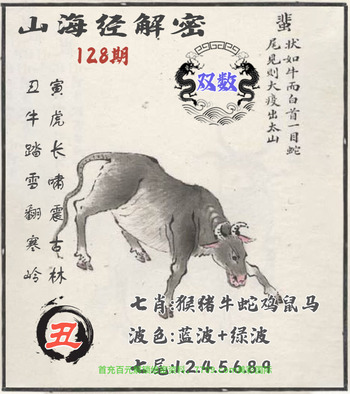 山海经解密
128期
双数
蜚
状如牛而白首一目蛇
尾见则大疫出太山
寅虎长啸震古林
丑牛踏雪翻寒岭
丑
七肖:猴猪牛蛇鸡鼠马
波色:蓝波+绿波
七尾:1.2.4.5.6.8.9